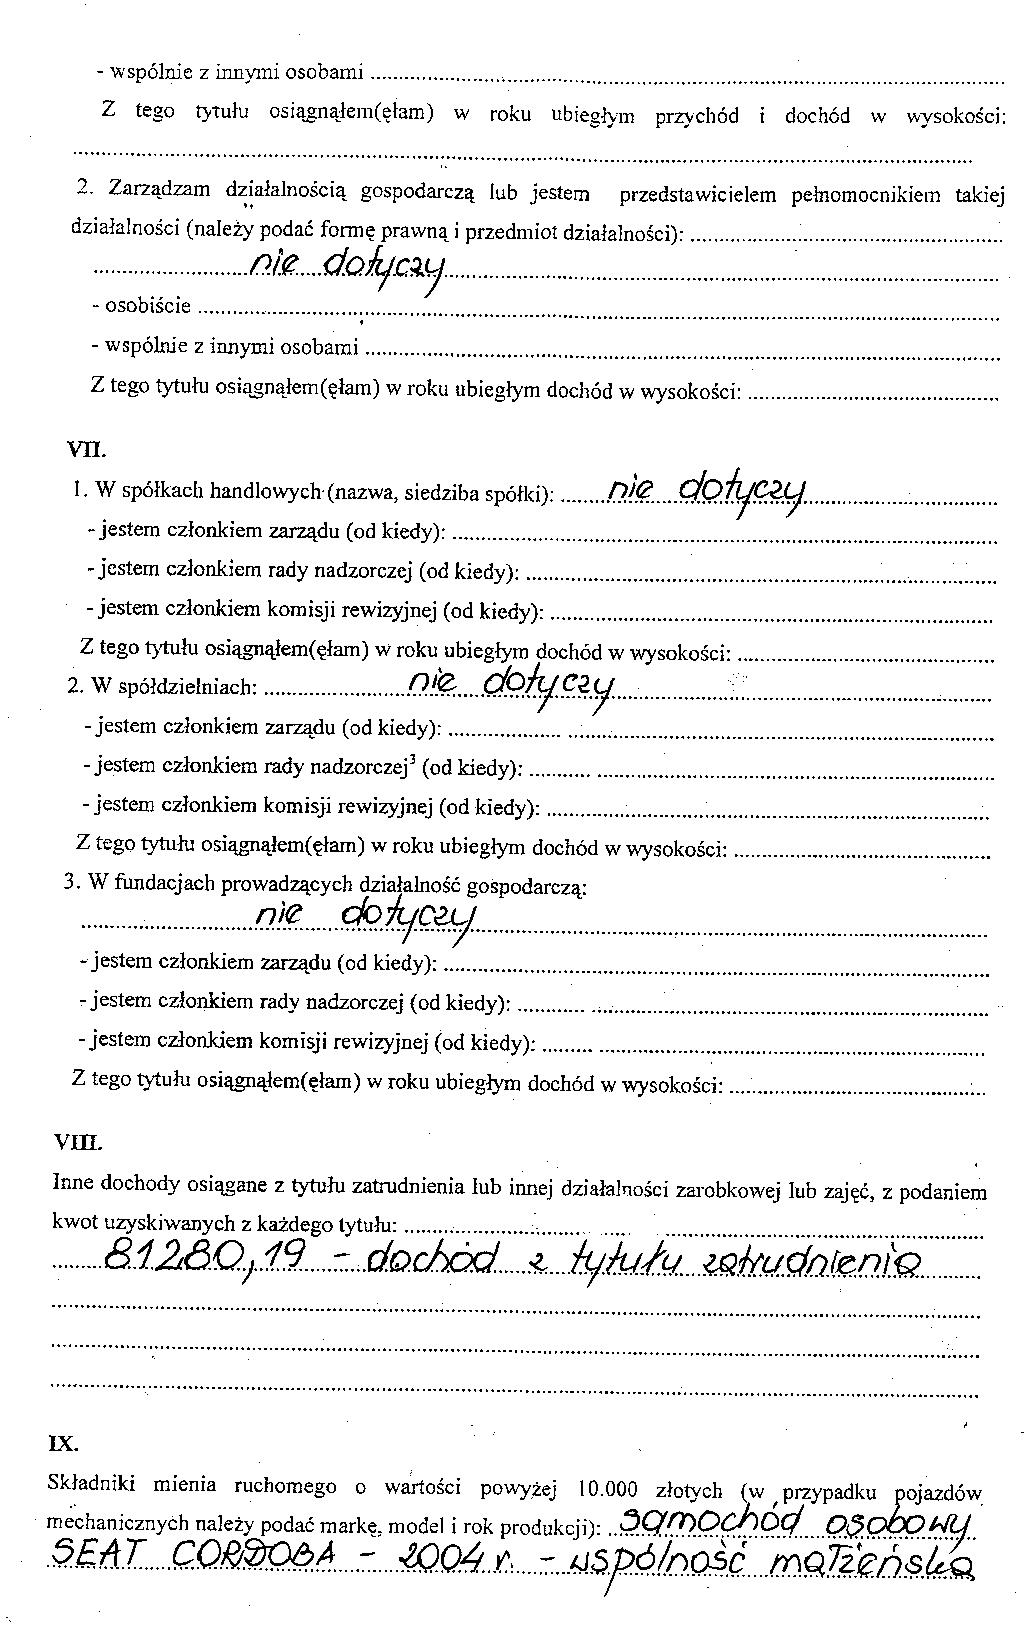 - wspólnie z innymi osobami ......................................................................
Z tego tytułu osiągnąłem(ęłam) w roku ubiegłym przychód i dochód w wysokości:
......................................................................
2. Zarządzam działalnością gospodarczą lub jestem przedstawicielem pełnomocnikiem takiej
działalności (należy podać formę prawną i przedmiot działalności): ........................................
.................... nie dotyczy ........................................
- osobiście ......................................................................
- wspólnie z innymi osobami ......................................................................
Z tego tytułu osiągnąłem(ęłam) w roku ubiegłym dochód w wysokości: ........................................
VII.
1. W spółkach handlowych (nazwa, siedziba spółki): ...... nie dotyczy ....................
- jestem członkiem zarządu (od kiedy): ......................................................................
- jestem członkiem rady nadzorczej (od kiedy): ............................................................
- jestem członkiem komisji rewizyjnej (od kiedy): ............................................................
Z tego tytułu osiągnąłem(ęłam) w roku ubiegłym dochód w wysokości: ........................................
2. W spółdzielniach: .................... nie dotyczy ........................................
- jestem członkiem zarządu (od kiedy): ......................................................................
- jestem członkiem rady nadzorczej³ (od kiedy): ............................................................
- jestem członkiem komisji rewizyjnej (od kiedy): ............................................................
Z tego tytułu osiągnąłem(ęłam) w roku ubiegłym dochód w wysokości: ........................................
3. W fundacjach prowadzących działalność gospodarczą:
.................... nie dotyczy ........................................
- jestem członkiem zarządu (od kiedy): ......................................................................
- jestem członkiem rady nadzorczej (od kiedy): ............................................................
- jestem członkiem komisji rewizyjnej (od kiedy): ............................................................
Z tego tytułu osiągnąłem(ęłam) w roku ubiegłym dochód w wysokości: ........................................
VIII.
Inne dochody osiągane z tytułu zatrudnienia lub innej działalności zarobkowej lub zajęć, z podaniem
kwot uzyskiwanych z każdego tytułu: ......................................................................
...... 81280,19 - dochód z tytułu zatrudnienia ......
......................................................................
......................................................................
......................................................................
IX.
Składniki mienia ruchomego o wartości powyżej 10.000 złotych (w przypadku pojazdów
mechanicznych należy podać markę, model i rok produkcji): .. samochód osobowy
SEAT CORDOBA - 2004 r. - wspólność małżeńska